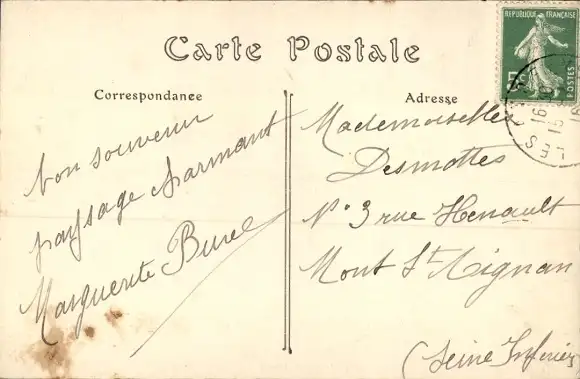 Carte Postale
REPUBLIQUE FRANÇAISE
5c
POSTES
Correspondance
Adresse
bon souvenir
paysage charmant
Marguerite Burel
Mademoiselles
Desmottes
N° 3 rue Henault
Mont St Aignan
(Seine Inférie